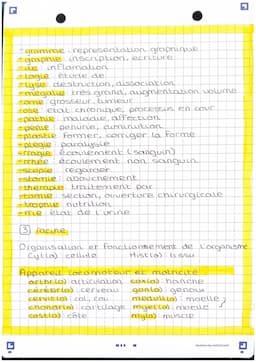 -gramme: représentation graphique
-graphie inscription, écriture
-ite inflamation
-logie étude de
-lyse destruction, dissociation
-mégalie très grand, augmentation volume
-ome grosseur, tumeur
-ose état chronique, processus en cour
-pathie maladie, affection
-pénie pénurie, diminution
-plastie former, corriger la forme
-plégie paralysie
-rragie écoulement (sanguin)
-rrhée écoulement non sanguin
-scopie regarder
-stomie abouchement
-thérapie traitement par
-tomie section, ouverture chirurgicale
-trophie nutrition
-urie état de l'urine
3 racine
Organisation et Fonctionnement de l'organisme
Cyt(o) cellule Hist(o) tissu
Appareil locomoteur et motricité
arthr(o) articulation cox(o) hanche
cérébr(o) cerveau gon(o) genoux
cervic(o) col, cou médull(o) moelle
chondr(o) cartilage myél(o) moelle
cost(o) côte my(o) muscle